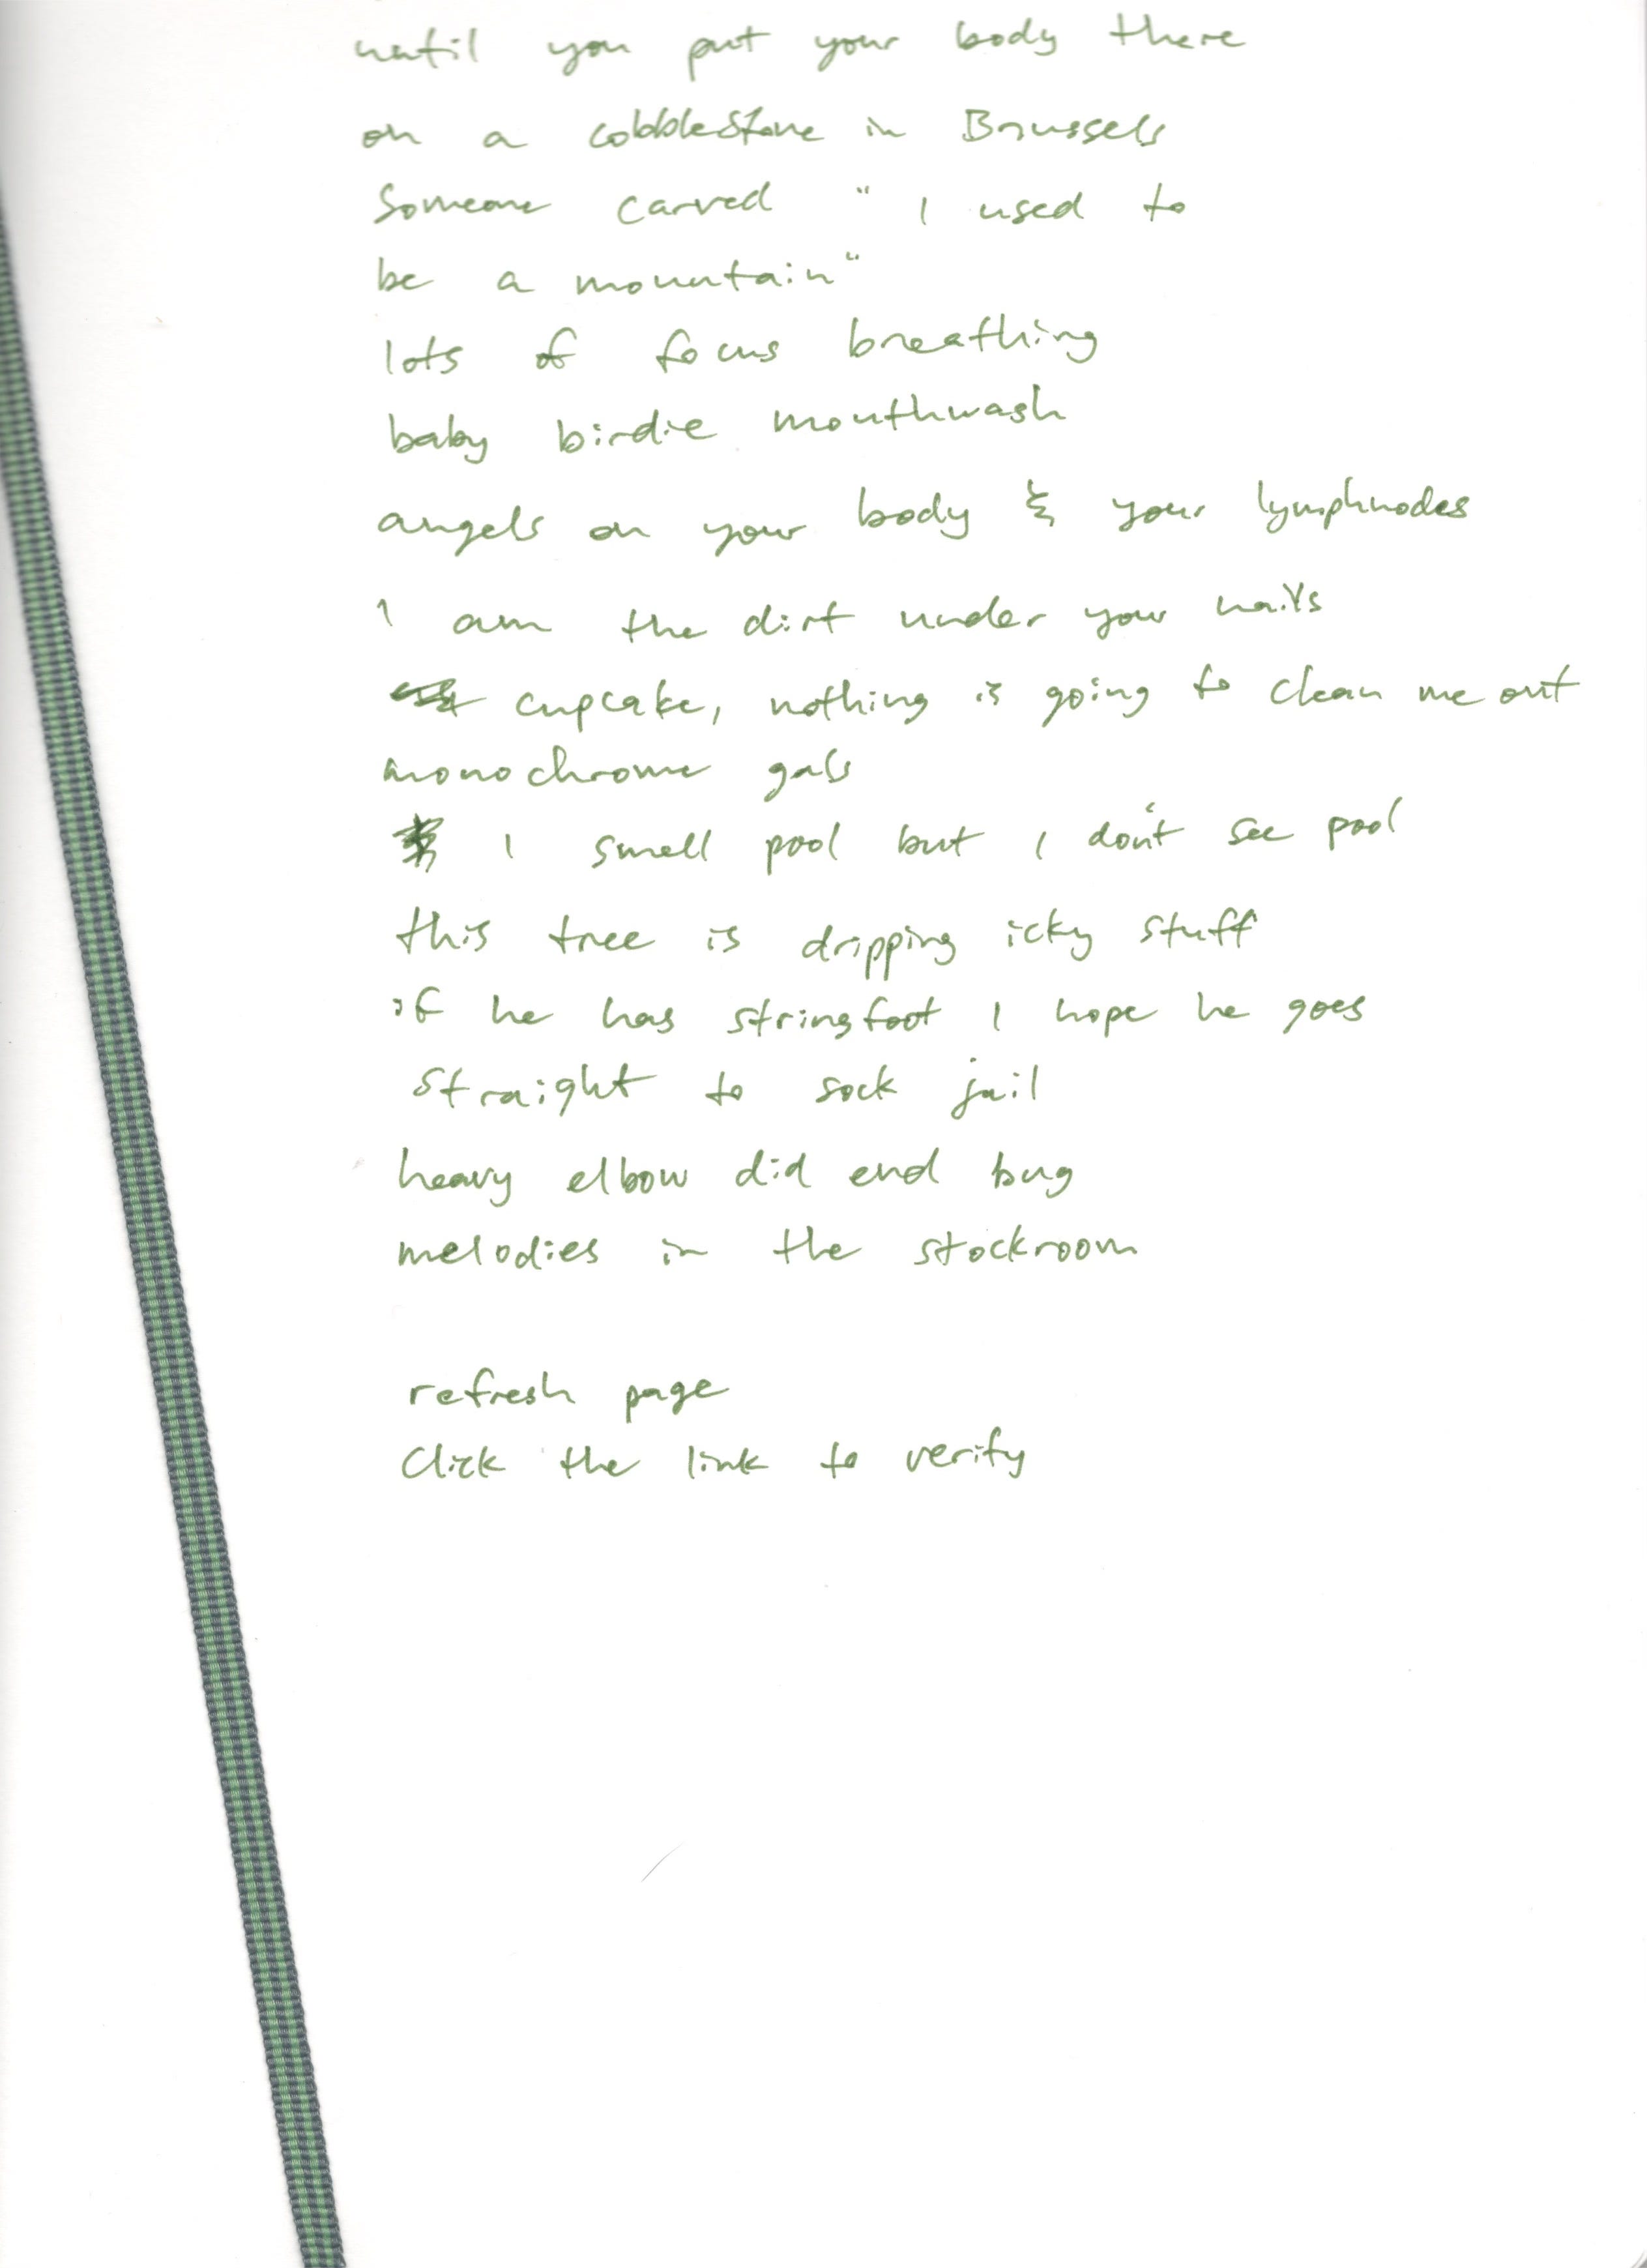 until you put your body there
on a cobblestone in Brussels
Someone carved "I used to
be a mountain"
lots of focus breathing
baby birdie mouthwash
angels on your body & your lymphnodes
I am the dirt under your nails
cupcake, nothing is going to clean me out
monochrome gals
I smell pool but I don't see pool
this tree is dripping icky stuff
if he has stringfoot I hope he goes
straight to sock jail
heavy elbow did end bug
melodies in the stockroom
refresh page
Click the link to verify